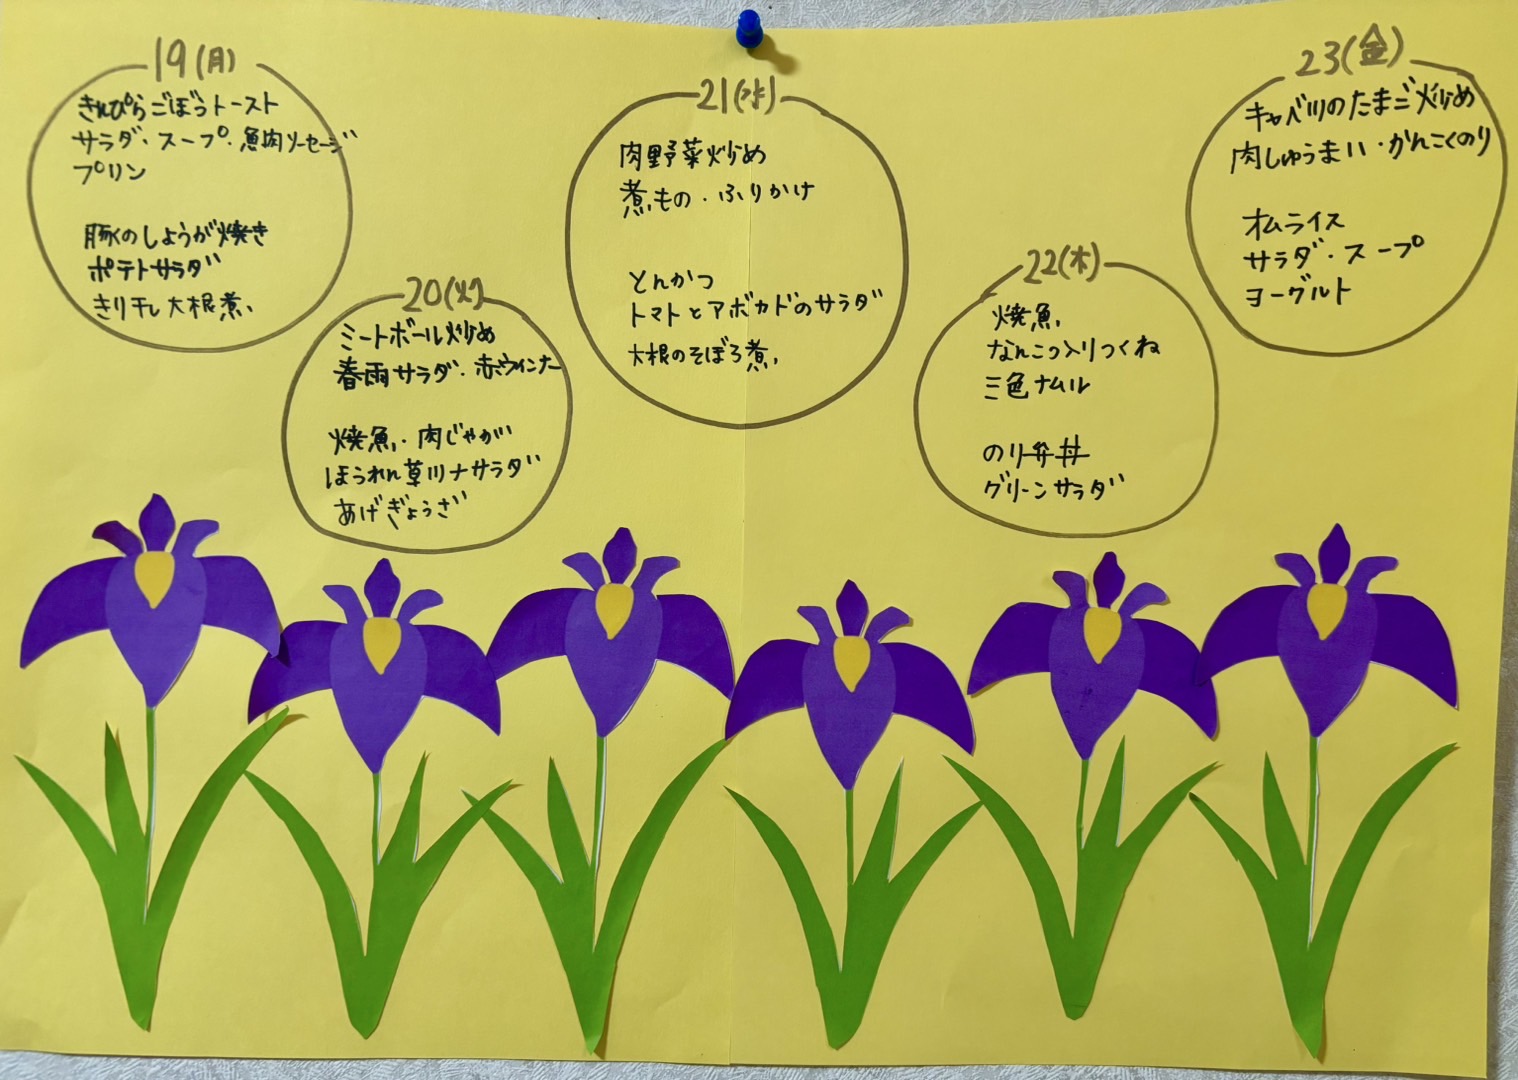 19(月)
きんぴらごぼうトースト
サラダ・スープ・魚肉ソーセージ
プリン
豚のしょうが焼き
ポテトサラダ
きり干し大根煮
20(火)
ミートボール炒め
春雨サラダ・赤ウインナー
焼魚・肉じゃが
ほうれん草ツナサラダ
あげぎょうざ
21(水)
肉野菜炒め
煮もの・ふりかけ
とんかつ
トマトとアボカドのサラダ
大根のそぼろ煮
22(木)
焼魚
なんこつ入りつくね
三色ナムル
のり弁丼
グリーンサラダ
23(金)
キャベツのたまご炒め
肉しゅうまい・かんこくのり
オムライス
サラダ・スープ
ヨーグルト